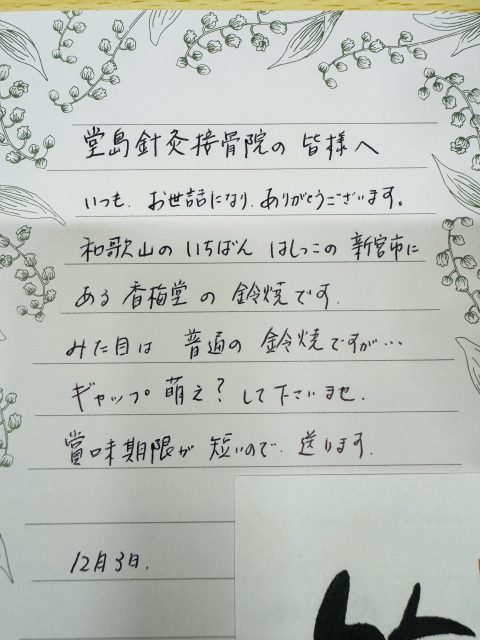 堂島針灸接骨院の 皆様へ
いつも、お世話になり、ありがとうございます。
和歌山の いちばん はしっこの 新宮市に
ある 香梅堂 の 鈴焼です。
みた目は 普通の 鈴焼ですが…
ギャップ 萌え? して下さいませ。
賞味期限が 短いので、送ります。
12月3日.